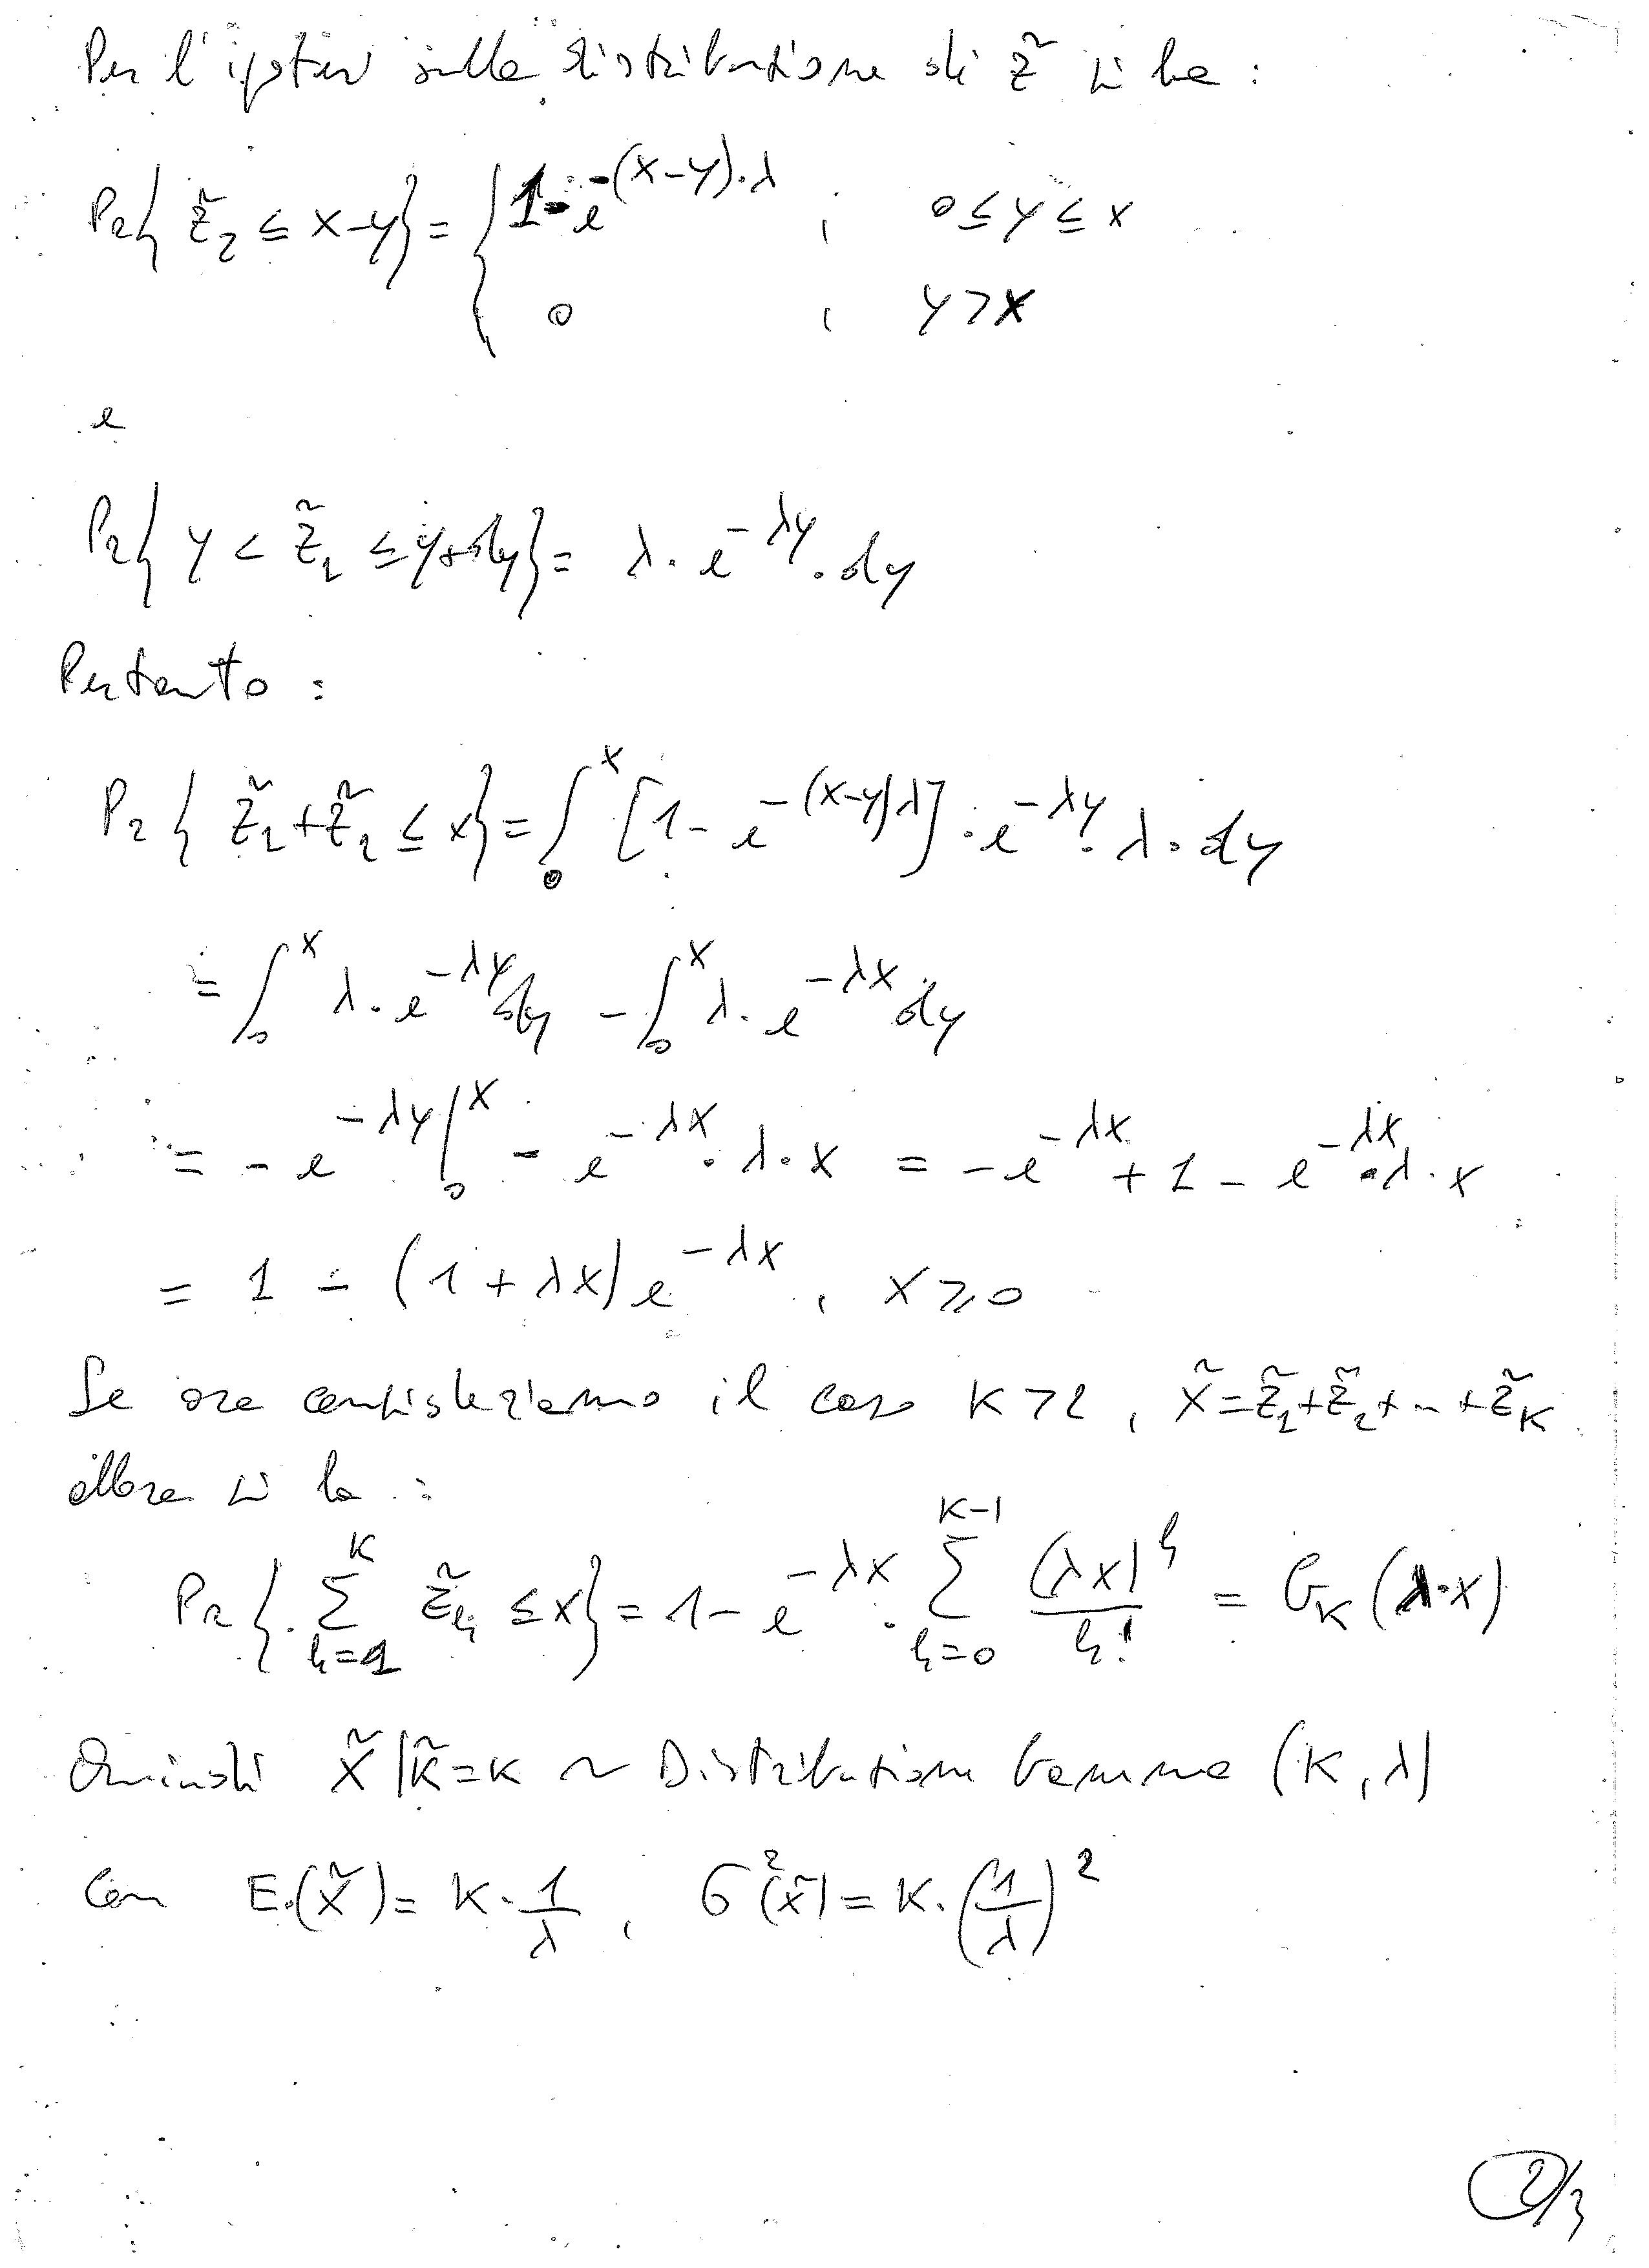 Per l'ipotesi sulla distribuzione di z̃ si ha :
Pr{ z̃₂ ≤ x-y} = { 1 - e^{-(x-y)·λ} , 0 ≤ y ≤ x
0 , y > x
e
Pr{ y < z̃₁ ≤ y+dy} = λ · e^{-λy} · dy
Pertanto :
Pr{ z̃₁+z̃₂ ≤ x} = ∫₀^x [1 - e^{-(x-y)λ}] · e^{-λy} · λ · dy
= ∫₀^x λ · e^{-λy} dy - ∫₀^x λ · e^{-λx} dy
= - e^{-λy} |₀^x - e^{-λx} · λ · x = -e^{-λx} + 1 - e^{-λx} · λ · x
= 1 - (1 + λx) e^{-λx} , x ≥ 0
Se ora consideriamo il caso K > 2 , x̃ = z̃₁+z̃₂+ … +z̃_K
allora si ha :
Pr{ Σ_{h=1}^{K} z̃_h ≤ x} = 1 - e^{-λx} · Σ_{h=0}^{K-1} (λx)^h / h! = G_K (λ·x)
Quindi x̃ | K̃=K ~ Distribuzione Gamma (K, λ)
Con E(x̃) = K · 1/λ , σ²(x̃) = K · (1/λ)²
2/3